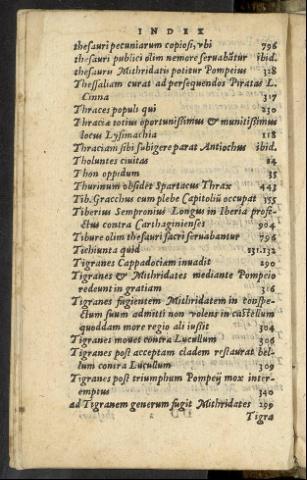 INDEX
thesauri pecuniarum copiosi, vbi 796
thesauri publici olim nemore seruabãtur ibid.
thesauru Mithridatis potitur Pompeius 318
Thessaliam curat ad persequendos Piratas L.
Cinna 317
Thraces populi qui 250
Thraciæ totius oportunissimus & munitissimus
locus Lysimachia 118
Thraciam sibi subigere parat Antiochus ibid.
Tholuntes ciuitas 84
Thon oppidum 35
Thurinum obsidet Spartacus Thrax 443
Tib. Gracchus cum plebe Capitoliũ occupat 355
Tiberius Sempronius Longus in Iberia profe-
ctus contra Carthaginienses 904
Tibure olim thesauri sacri seruabantur 796
Tichiunta quid 131.132
Tigranes Cappadociam inuadit 290
Tigranes & Mithridates mediante Pompeio
redeunt in gratiam 316
Tigranes fugientem Mithridatem in conspe-
ctum suum admitti non volens in castellum
quoddam more regio ali iussit 304
Tigranes mouet contra Lucullum 306
Tigranes post acceptam cladem restaurat bel-
lum contra Lucullum 309
Tigranes post triumphum Pompeij mox inter-
emptus 340
ad Tigranem generum fugit Mithridates 299
Tigra